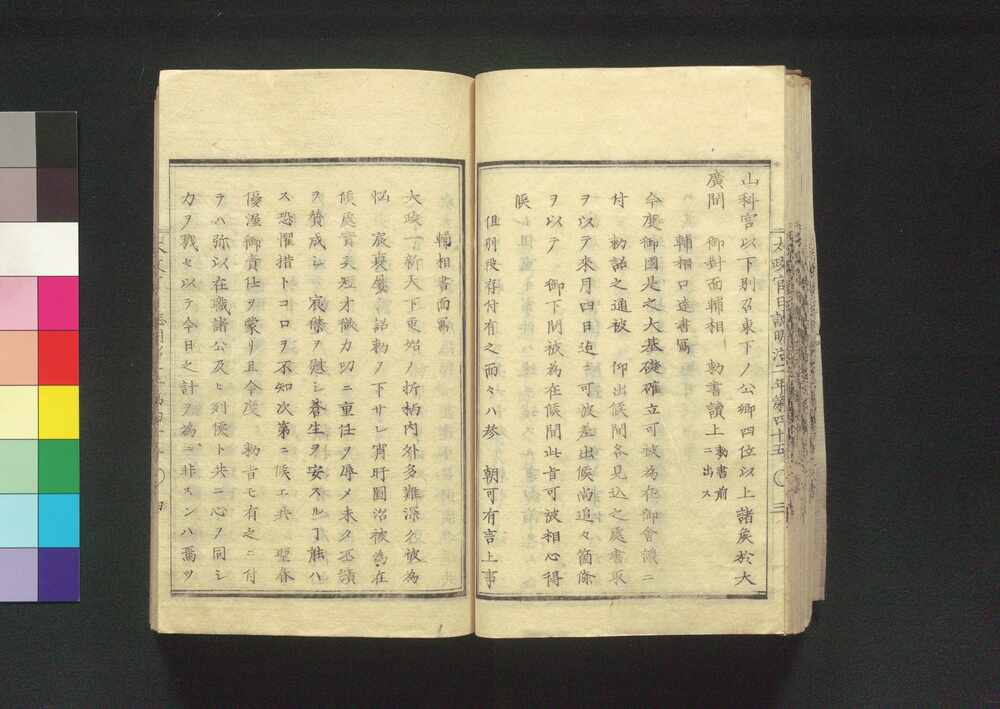 山科宮以下別召東下ノ公卿四位以上諸矦於大
廣間　御對面輔相　勅書讀上勅書前ニ出ス
輔相口達書寫
今度御國是之大基礎確立可被為在御會議ニ
付　勅詔之通被　仰出候間各見込之處書取
ヲ以テ來月四日迄ニ可被差出候尚追々箇條
ヲ以テ　御下問被為在候間此旨可被相心得
候
但別段存付有之面々ハ參　朝可有言上事
太政官日誌明治二年第四十五　三
輔相書面寫
大政一新天下更始ノ折柄內外多難深ク被為
惱　宸衷屢　詔勅ヲ下サレ宵旰圖治被為在
候處實美短才微力叨ニ重任ヲ辱メ未タ丕績
ヲ贊成シ　宸襟ヲ慰シ蒼生ヲ安スル丁能ハ
ス恐懼措トコロヲ不知次第ニ候エ共　聖眷
優渥御責任ヲ蒙リ且今度　勅旨モ有之ニ付
テハ弥以在職諸公及ヒ列候ト共ニ心ヲ同シ
力ヲ戮セ以テ今日之計ヲ為ニ非スンハ焉ソ